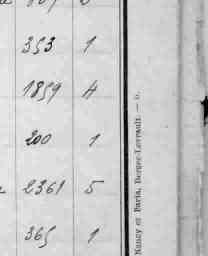 353 1
1859 4
200 1
2361 5
365 1
Nancy et Paris, Berger-Levrault. — 6.